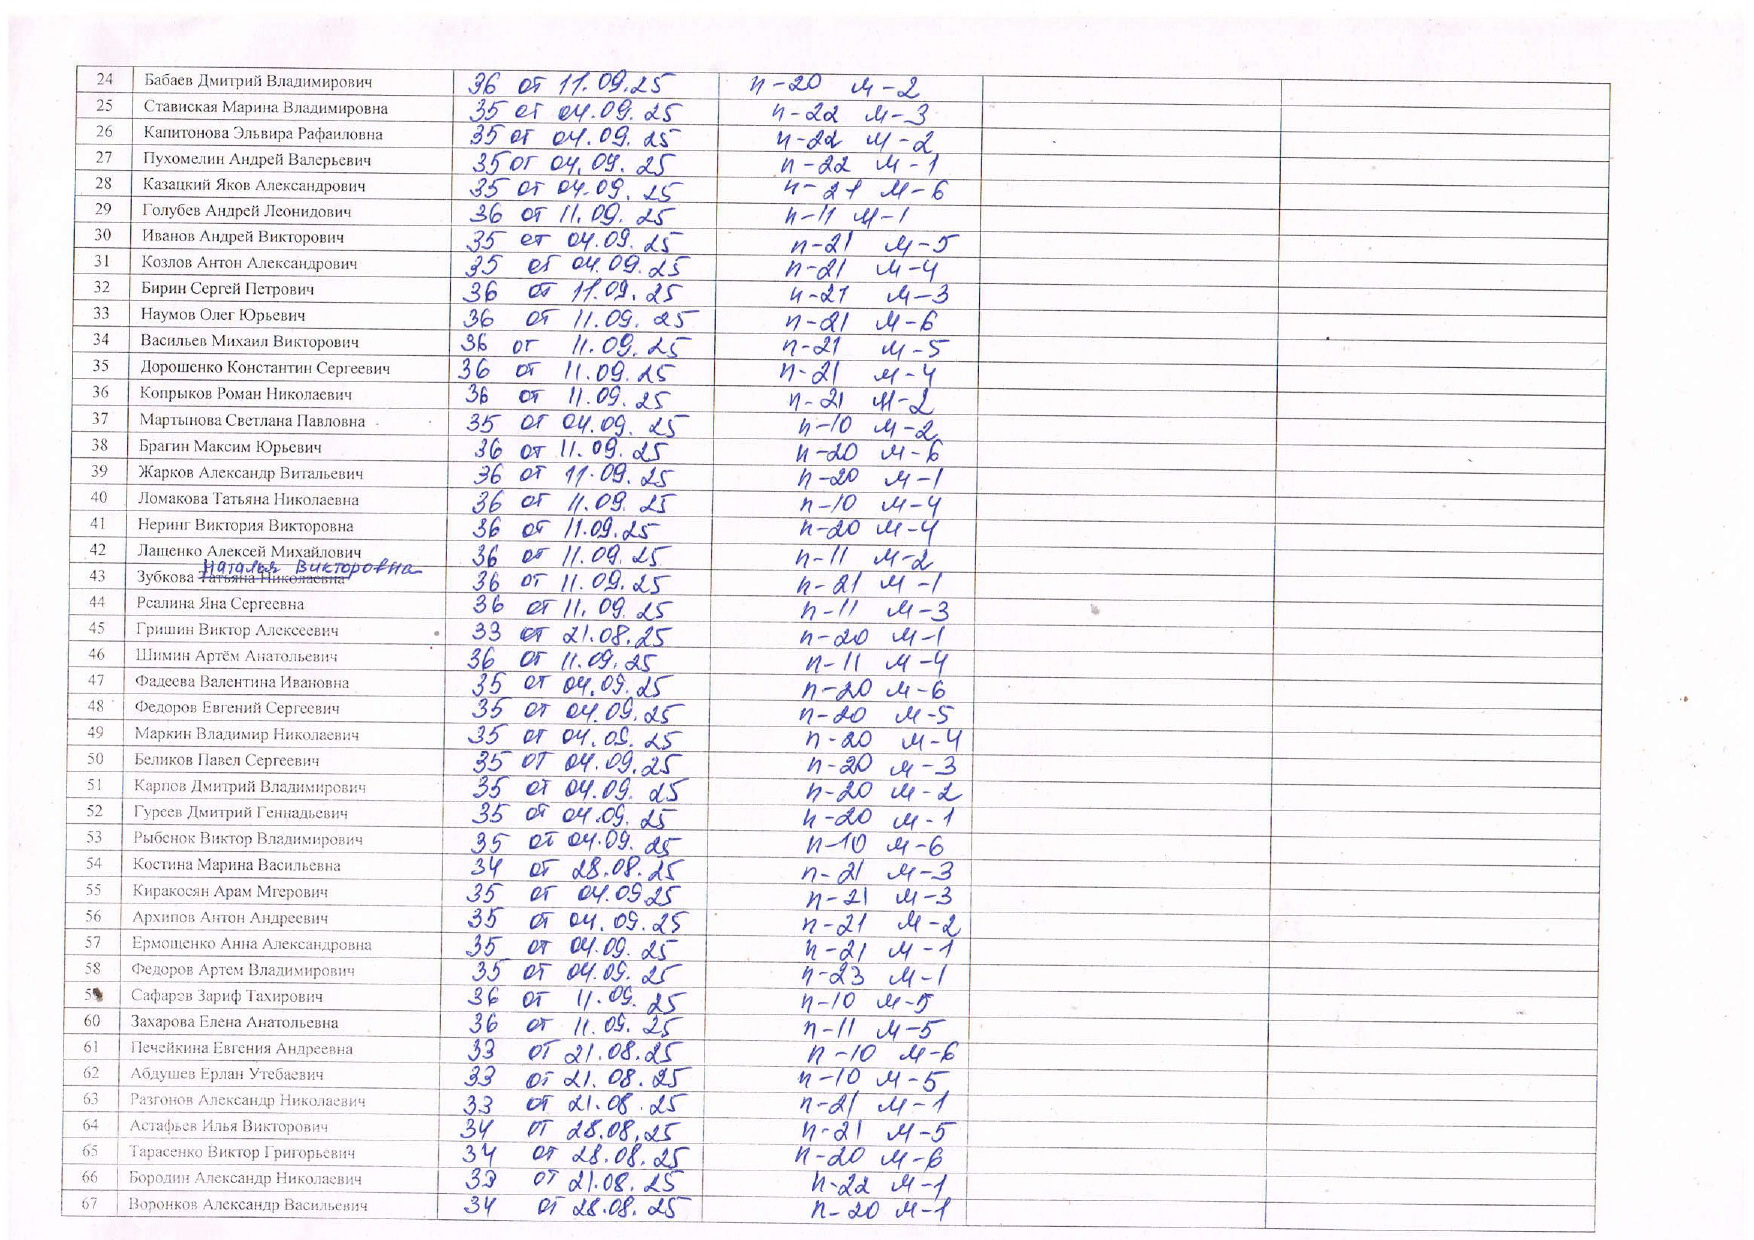 24 Бабаев Дмитрий Владимирович 36 от 11.09.25 п-20 м-2
25 Ставиская Марина Владимировна 35 от 04.09.25 п-22 м-3
26 Капитонова Эльвира Рафаиловна 35 от 04.09.25 п-22 м-2
27 Пухомелин Андрей Валерьевич 35 от 04.09.25 п-22 м-1
28 Казацкий Яков Александрович 35 от 04.09.25 п-21 м-6
29 Голубев Андрей Леонидович 36 от 11.09.25 п-11 м-1
30 Иванов Андрей Викторович 35 от 04.09.25 п-21 м-5
31 Козлов Антон Александрович 35 от 04.09.25 п-21 м-4
32 Бирин Сергей Петрович 36 от 11.09.25 п-21 м-3
33 Наумов Олег Юрьевич 36 от 11.09.25 п-21 м-6
34 Васильев Михаил Викторович 36 от 11.09.25 п-21 м-5
35 Дорошенко Константин Сергеевич 36 от 11.09.25 п-21 м-4
36 Копрыков Роман Николаевич 36 от 11.09.25 п-21 м-2
37 Мартынова Светлана Павловна 35 от 04.09.25 п-10 м-2
38 Брагин Максим Юрьевич 36 от 11.09.25 п-20 м-6
39 Жарков Александр Витальевич 36 от 11.09.25 п-20 м-1
40 Ломакова Татьяна Николаевна 36 от 11.09.25 п-10 м-4
41 Неринг Виктория Викторовна 36 от 11.09.25 п-20 м-4
42 Лащенко Алексей Михайлович 36 от 11.09.25 п-11 м-2
Наталья Викторовна
43 Зубкова Татьяна Николаевна 36 от 11.09.25 п-21 м-1
44 Рсалина Яна Сергеевна 36 от 11.09.25 п-11 м-3
45 Гришин Виктор Алексеевич 33 от 21.08.25 п-20 м-1
46 Шимин Артём Анатольевич 36 от 11.09.25 п-11 м-4
47 Фадеева Валентина Ивановна 35 от 04.09.25 п-20 м-6
48 Федоров Евгений Сергеевич 35 от 04.09.25 п-20 м-5
49 Маркин Владимир Николаевич 35 от 04.09.25 п-20 м-4
50 Беликов Павел Сергеевич 35 от 04.09.25 п-20 м-3
51 Карпов Дмитрий Владимирович 35 от 04.09.25 п-20 м-2
52 Гуреев Дмитрий Геннадьевич 35 от 04.09.25 п-20 м-1
53 Рыбенок Виктор Владимирович 35 от 04.09.25 п-10 м-6
54 Костина Марина Васильевна 34 от 28.08.25 п-21 м-3
55 Киракосян Арам Мгерович 35 от 04.09.25 п-21 м-3
56 Архипов Антон Андреевич 35 от 04.09.25 п-21 м-2
57 Ермошенко Анна Александровна 35 от 04.09.25 п-21 м-1
58 Федоров Артем Владимирович 35 от 04.09.25 п-23 м-1
59 Сафаров Зариф Тахирович 36 от 11.09.25 п-10 м-5
60 Захарова Елена Анатольевна 36 от 11.09.25 п-11 м-5
61 Печейкина Евгения Андреевна 33 от 21.08.25 п-10 м-6
62 Абдушев Ерлан Утебаевич 33 от 21.08.25 п-10 м-5
63 Разгонов Александр Николаевич 33 от 21.08.25 п-21 м-1
64 Астафьев Илья Викторович 34 от 28.08.25 п-21 м-5
65 Тарасенко Виктор Григорьевич 34 от 28.08.25 п-20 м-6
66 Бородин Александр Николаевич 33 от 21.08.25 п-22 м-1
67 Воронков Александр Васильевич 34 от 28.08.25 п-20 м-1